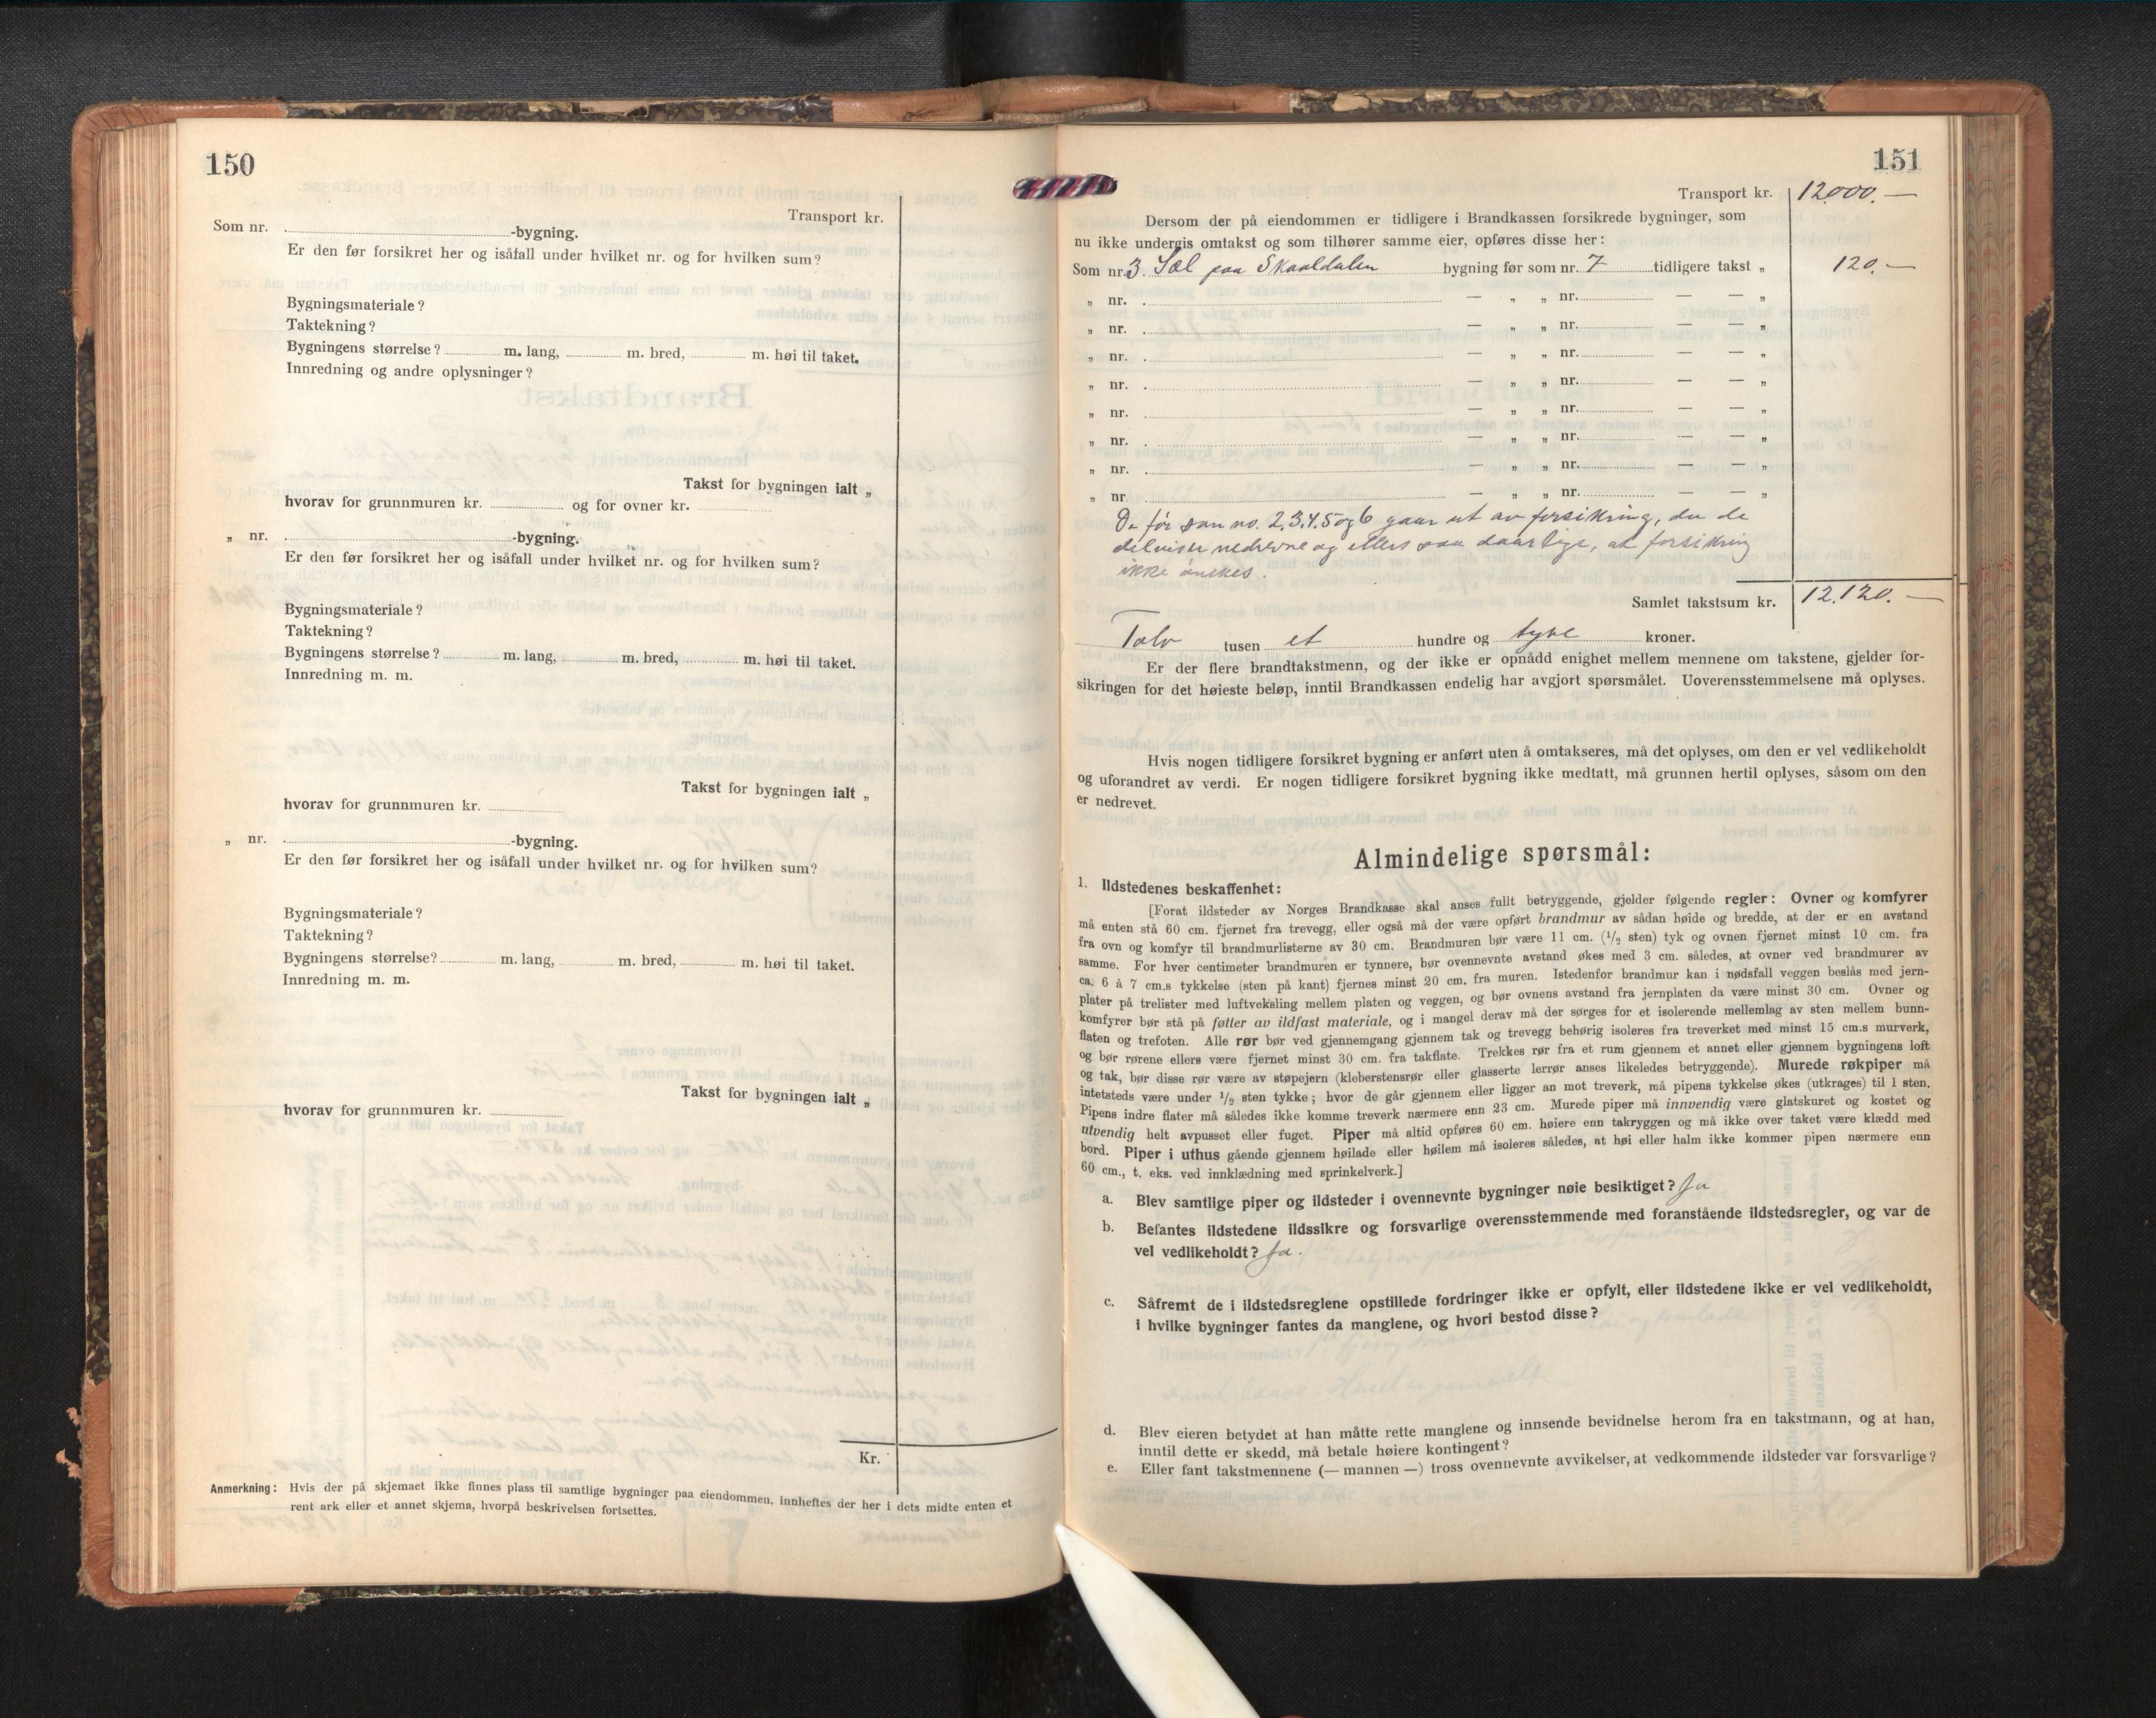 150
Transport kr.
Som nr. -bygning.
Er den før forsikret her og isåfall under hvilket nr. og for hvilken sum?
Bygningsmateriale?
Taktekning?
Bygningens størrelse? m. lang, m. bred, m. høi til taket.
Innredning og andre oplysninger?
Takst for bygningen ialt „
hvorav for grunnmuren kr. og for ovner kr.
„ nr. -bygning.
Er den før forsikret her og isåfall under hvilket nr. og for hvilken sum?
Bygningsmateriale?
Taktekning?
Bygningens størrelse? m. lang, m. bred, m. høi til taket.
Innredning m. m.
Takst for bygningen ialt „
hvorav for grunnmuren kr.
„ nr. -bygning.
Er den før forsikret her og isåfall under hvilket nr. og for hvilken sum?
Bygningsmateriale?
Taktekning?
Bygningens størrelse? m. lang, m. bred, m. høi til taket.
Innredning m. m.
Takst for bygningen ialt „
hvorav for grunnmuren kr.
Kr.
Anmerkning: Hvis der på skjemaet ikke finnes plass til samtlige bygninger paa eiendommen, innheftes der her i dets midte enten et
rent ark eller et annet skjema, hvorpå beskrivelsen fortsettes.
151
Transport kr. 12000.—
Dersom der på eiendommen er tidligere i Brandkassen forsikrede bygninger, som
nu ikke undergis omtakst og som tilhører samme eier, opføres disse her:
Som nr. 3. Sæl paa Skaaldalen bygning før som nr. 7 tidligere takst „ 120.—
„ nr. — „ „ nr. — — „
„ nr. — „ „ nr. — — „
„ nr. — „ „ nr. — — „
„ nr. — „ „ nr. — — „
„ nr. — „ „ nr. — — „
„ nr. — „ „ nr. — — „
„ nr. — „ „ nr. — — „
„ nr. — „ „ nr. — — „
De før som no. 2.3.4.5 og 6 gaar ut av forsikring, da de
delvis er nedrevne og ellers saa daarlige, at forsikring
ikke ønskes.
Samlet takstsum kr. 12.120.—
Tolv tusen et hundre og tyve kroner.
Er der flere brandtakstmenn, og der ikke er opnådd enighet mellem mennene om takstene, gjelder for-
sikringen for det høieste beløp, inntil Brandkassen endelig har avgjort spørsmålet. Uoverensstemmelsene må oplyses.
Hvis nogen tidligere forsikret bygning er anført uten å omtakseres, må det oplyses, om den er vel vedlikeholdt
og uforandret av verdi. Er nogen tidligere forsikret bygning ikke medtatt, må grunnen hertil oplyses, såsom om den
er nedrevet.
Almindelige spørsmål:
1. Ildstedenes beskaffenhet:
[Forat ildsteder av Norges Brandkasse skal anses fullt betryggende, gjelder følgende regler: Ovner og komfyrer
må enten stå 60 cm. fjernet fra trevegg, eller også må der være opført brandmur av sådan høide og bredde, at der er en avstand
fra ovn og komfyr til brandmurlisterne av 30 cm. Brandmuren bør være 11 cm. (1/2 sten) tyk og ovnen fjernet minst 10 cm. fra
samme. For hver centimeter brandmuren er tynnere, bør ovennevnte avstand økes med 3 cm. således, at ovner ved brandmurer av
ca. 6 à 7 cm.s tykkelse (sten på kant) fjernes minst 20 cm. fra muren. Istedenfor brandmur kan i nødsfall veggen beslås med jern-
plater på trelister med luftveksling mellem platen og veggen, og bør ovnens avstand fra jernplaten da være minst 30 cm. Ovner og
komfyrer bør stå på føtter av ildfast materiale, og i mangel derav må der sørges for et isolerende mellemlag av sten mellem bunn-
flaten og trefoten. Alle rør bør ved gjennemgang gjennem tak og trevegg behørig isoleres fra treverket med minst 15 cm.s murverk,
og bør rørene ellers være fjernet minst 30 cm. fra takflate. Trekkes rør fra et rum gjennem et annet eller gjennem bygningens loft
og tak, bør disse rør være av støpejern (kleberstensrør eller glasserte lerrør anses likeledes betryggende). Murede røkpiper må
intetsteds være under 1/2 sten tykke; hvor de går gjennem eller ligger an mot treverk, må pipens tykkelse økes (utkrages) til 1 sten.
Pipens indre flater må således ikke komme treverk nærmere enn 23 cm. Murede piper må innvendig være glatskuret og kostet og
utvendig helt avpusset eller fuget. Piper må altid opføres 60 cm. høiere enn takryggen og må ikke over taket være klædd med
bord. Piper i uthus gående gjennem høilade eller høilem må isoleres således, at høi eller halm ikke kommer pipen nærmere enn
60 cm., t. eks. ved innklædning med sprinkelverk.]
a. Blev samtlige piper og ildsteder i ovennevnte bygninger nøie besiktiget? Ja
b. Befantes ildstedene ildssikre og forsvarlige overensstemmende med foranstående ildstedsregler, og var de
vel vedlikeholdt? Ja.
c. Såfremt de i ildstedsreglene opstillede fordringer ikke er opfylt, eller ildstedene ikke er vel vedlikeholdt,
i hvilke bygninger fantes da manglene, og hvori bestod disse?
d. Blev eieren betydet at han måtte rette manglene og innsende bevidnelse herom fra en takstmann, og at han,
inntil dette er skedd, må betale høiere kontingent?
e. Eller fant takstmennene (— mannen —) tross ovennevnte avvikelser, at vedkommende ildsteder var forsvarlige?